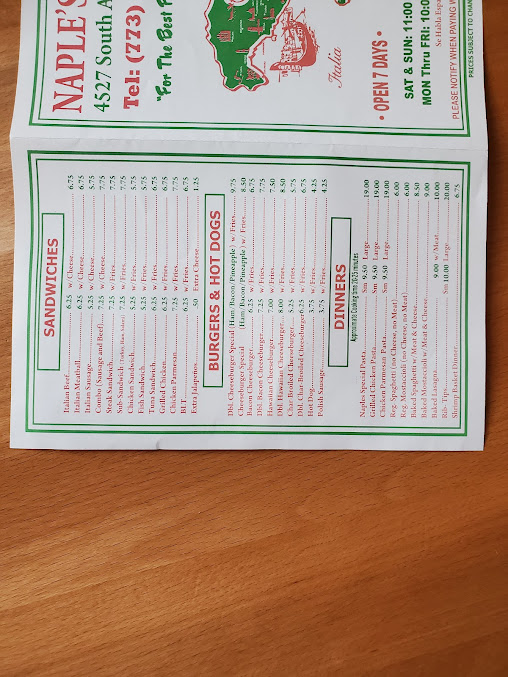 NAPLE'S
4527 South A
Tel: (773)
"For The Best P
Italia
• OPEN 7 DAYS •
SAT & SUN: 11:00
MON Thru FRI: 10:0
Se Habla Espa
PLEASE NOTIFY WHEN PAYING W
PRICES SUBJECT TO CHAN
SANDWICHES
Italian Beef 6.25 w/ Cheese 6.75
Italian Meatball 6.25 w/ Cheese 6.75
Italian Sausage 5.25 w/ Cheese 5.75
Combo (Sausage and Beef) 7.25 w/ Cheese 7.75
Steak Sandwich 7.25 w/ Fries 7.75
Sub-Sandwich 7.25 w/ Fries 7.75
Chicken Sandwich 5.25 w/ Fries 5.75
Fish Sandwich 5.25 w/ Fries 5.75
Tuna Sandwich 6.25 w/ Fries 6.75
Grilled Chicken 6.25 w/ Fries 6.75
Chicken Parmesan 7.25 w/ Fries 7.75
BLT 6.25 w/ Fries 6.75
Extra Jalapenos .50 Extra Cheese 1.25
BURGERS & HOT DOGS
Dbl. Cheeseburger Special (Ham/Bacon/Pineapple) w/ Fries 9.75
Cheeseburger Special (Ham/Bacon/Pineapple) w/ Fries 8.50
Bacon Cheeseburger 6.25 w/ Fries 6.75
Dbl. Bacon Cheeseburger 7.25 w/ Fries 7.75
Hawaiian Cheeseburger 7.00 w/ Fries 7.50
Dbl Hawaiian Cheeseburger 8.00 w/ Fries 8.50
Char-Broiled Cheeseburger 5.25 w/ Fries 5.75
Dbl. Char-Broiled Cheeseburger 6.25 w/ Fries 6.75
Hot Dog 3.75 w/ Fries 4.25
Polish Sausage 3.75 w/ Fries 4.25
DINNERS
Approximate Cooking time 20-25 minutes
Naples Special Pasta Sm 9.50 Large 19.00
Grilled Chicken Pasta Sm 9.50 Large 19.00
Chicken Parmesan Pasta Sm 9.50 Large 19.00
Reg. Spaghetti (no Cheese, no Meat) 6.00
Reg. Mostaccioli (no Cheese, no Meat) 6.00
Baked Spaghetti w/ Meat & Cheese 8.50
Baked Mostaccioli w/ Meat & Cheese 9.00
Baked Lasagna 9.00 w/ Meat 10.00
Rib-Tips Sm 10.00 Large 20.00
Shrimp Basket Dinner 6.75